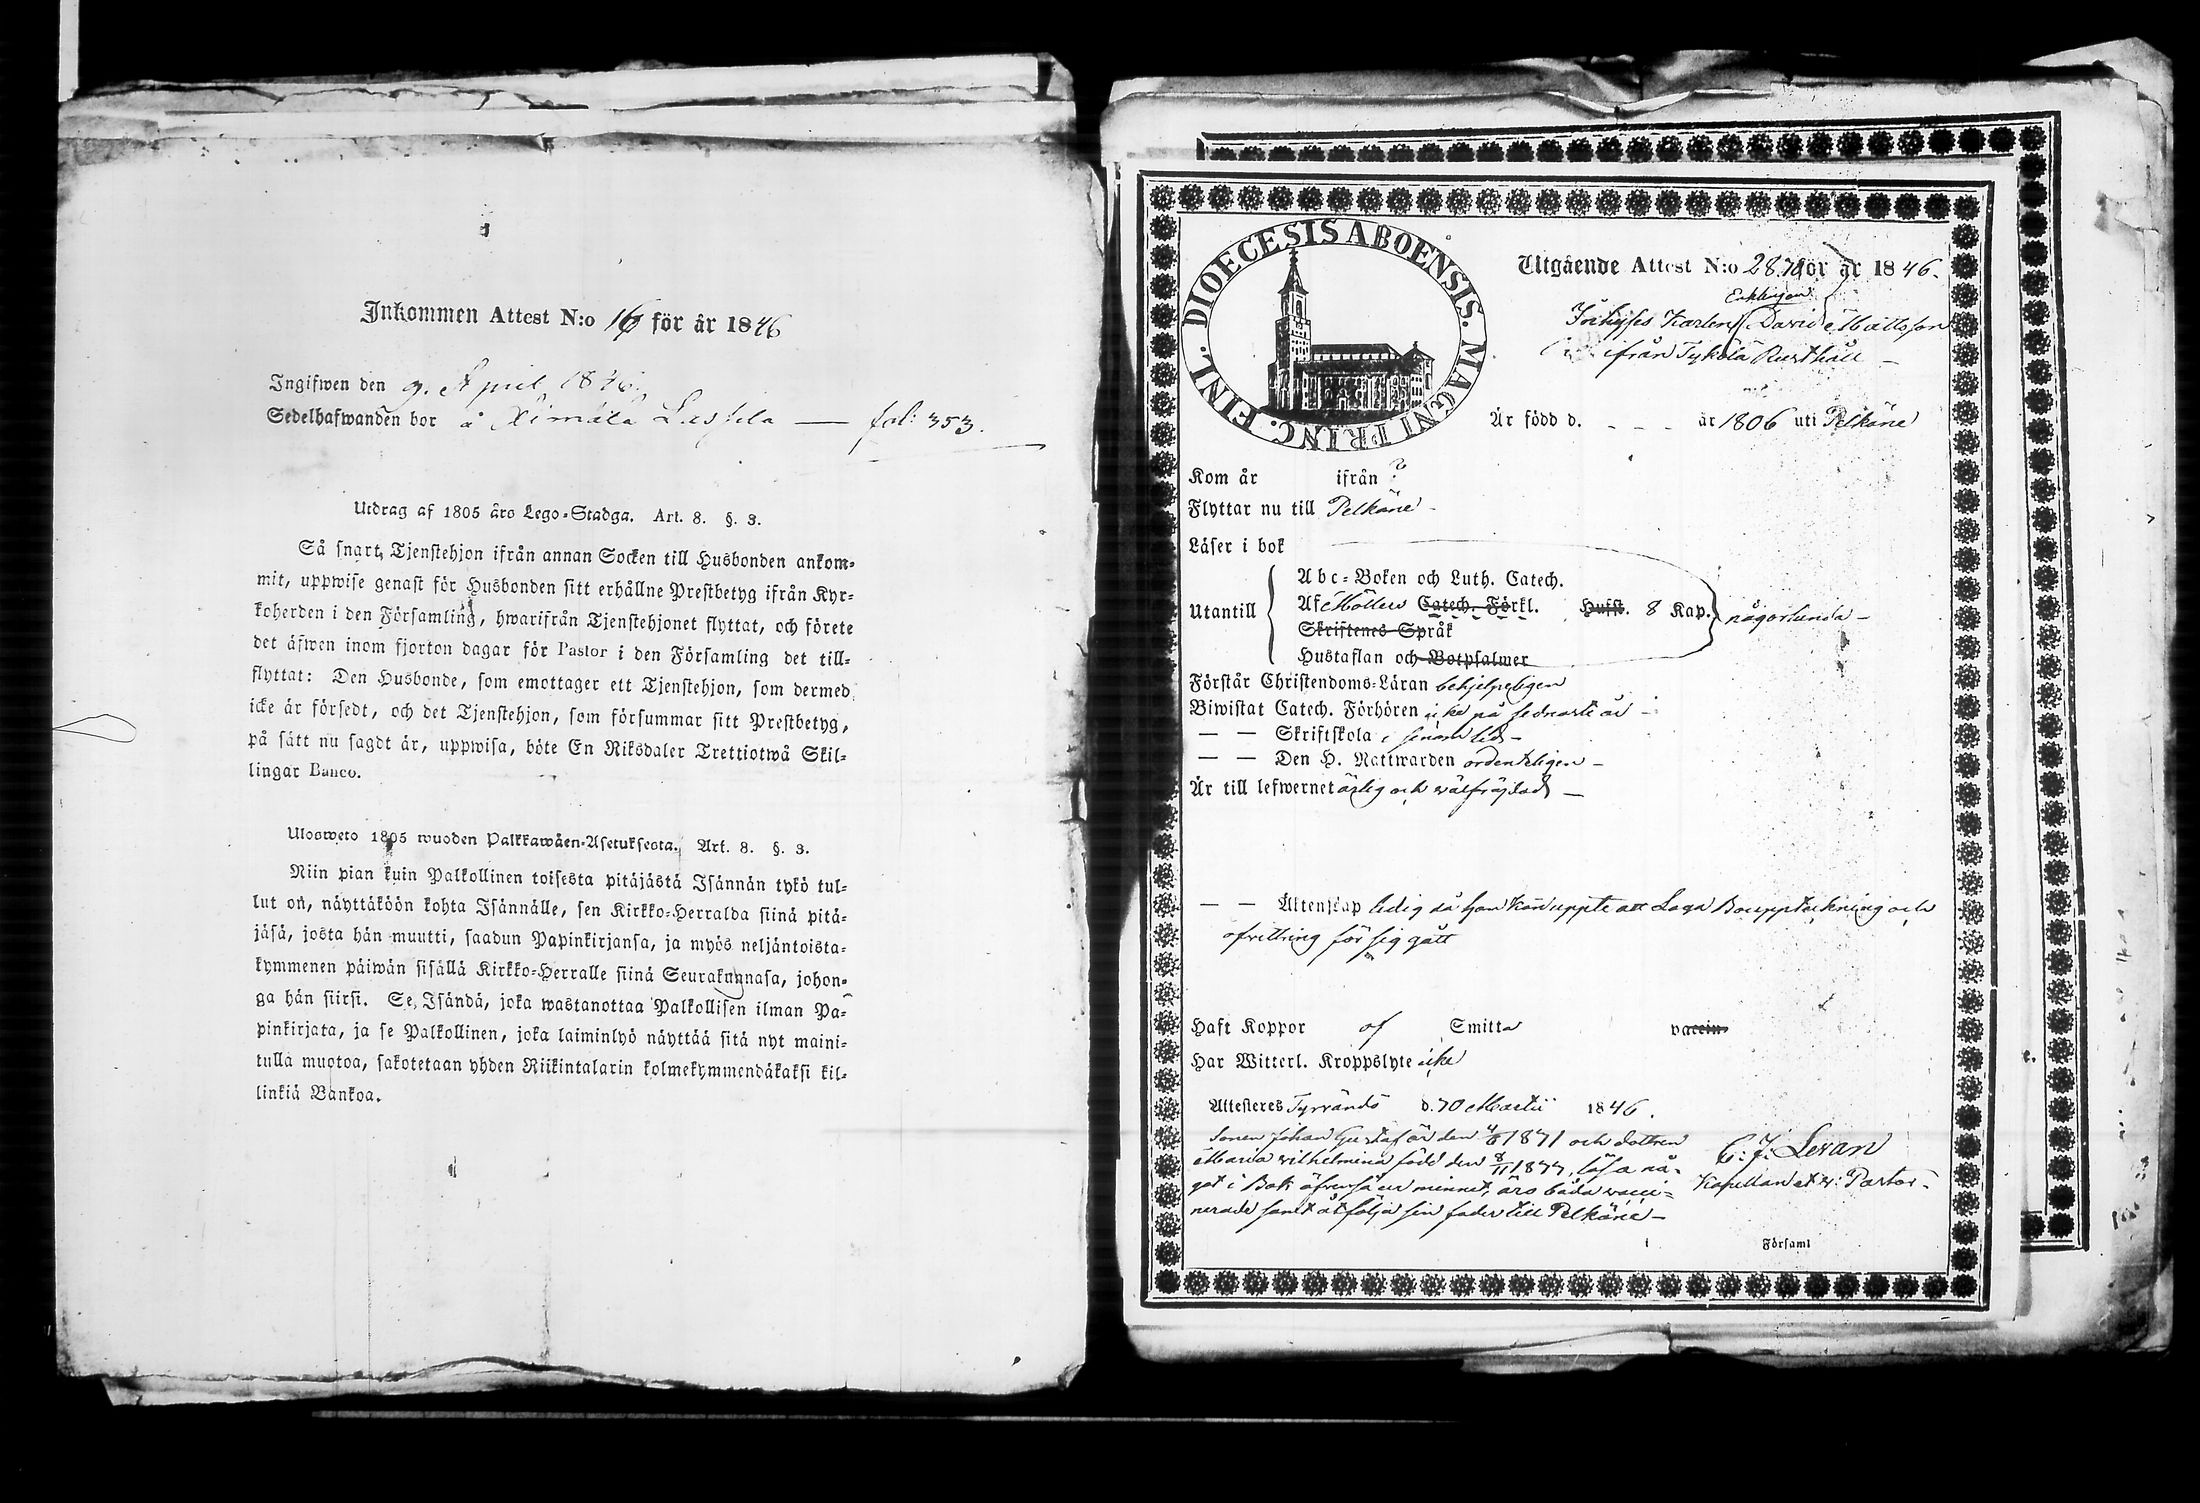 Inkommen Attest N:o 16 för år 1846
Ingifwen den 9. April 1846.
Sedelhafwanden bor å Äimälä Lassila — fol: 353.
Utdrag af 1805 års Lego-Stadga. Art. 8. §. 3.
Så snart Tjenstehjon ifrån annan Socken till Husbonden ankom-
mit, uppwise genast för Husbonden sitt erhållne Prestbetyg ifrån Kyr-
koherden i den Församling, hwarifrån Tjenstehjonet flyttat, och förete
det äfwen inom fjorton dagar för Pastor i den Församling det till-
flyttat: Den Husbonde, som emottager ett Tjenstehjon, som dermed
icke är försedt, och det Tjenstehjon, som försummar sitt Prestbetyg,
på sätt nu sagdt är, uppwisa, böte En Riksdaler Trettiotwå Skil-
lingar Banco.
Ulosweto 1805 wuoden Palkkawäen-Asetuksesta. Art. 8. §. 3.
Niin pian kuin Palkollinen toisesta pitäjästä Isännän tykö tul-
lut on, näyttäköön kohta Isännälle, sen Kirkko-Herralda siinä pitä-
jäsä, josta hän muutti, saadun Papinkirjansa, ja myös neljäntoista-
kymmenen päiwän sisällä Kirkko-Herralle siinä Seurakunnasa, johon-
ga hän siirsi. Se Isändä, joka wastanottaa Palkollisen ilman Pa-
pinkirjata, ja se Palkollinen, joka laiminlyö näyttää sitä nyt maini-
tulla muotoa, sakotetaan yhden Riikintalarin kolmekymmendäkaksi kil-
linkiä Bankoa.
DIOECESIS ABOENSIS. MAGNI PRINC. FINL.
Utgående Attest N:o 28. för år 1846.
Enklingen
Inhyses Karlen David Mattsson
ifrån Tykölä Rusthåll —
Är född d. - - - år 1806 uti Pelkäne
Kom år ifrån ?
Flyttar nu till Pelkäne -
Läser i bok
Abc-Boken och Luth. Catech.
Utantill Af Möllers Catech. Förkl. Husst. 8 Kap. någorlunda —
Skriftenes Språk
Hustaflan och Botpsalmer
Förstår Christendoms-Läran behjelpeligen
Biwistat Catech. Förhören icke på sednaste år -
— — Skriftskola i senare tid -
— — Den H. Nattwarden ordenteligen —
Är till lefwernet ärlig och wälfräjdad —
— — Äktenskap ledig då han kan uppte att Laga Bouppteckning och
afvittring för sig gått
Haft Koppor af Smitta vaccin.
Har Witterl. Kroppslyte icke
Attesteres Tyrvändö d. 30 Martii 1846.
Sonen Johan Gustaf är den 1831 och dottren
Maria Wilhelmina född den 8/11 1833, läsa nå-
got i Bok äfvenså ur minnet, äro båda vacci-
nerade samt åtfölja sin fader till Pelkäne —
C: J: Levan
Kapellan et v: Pastor -
i Församl